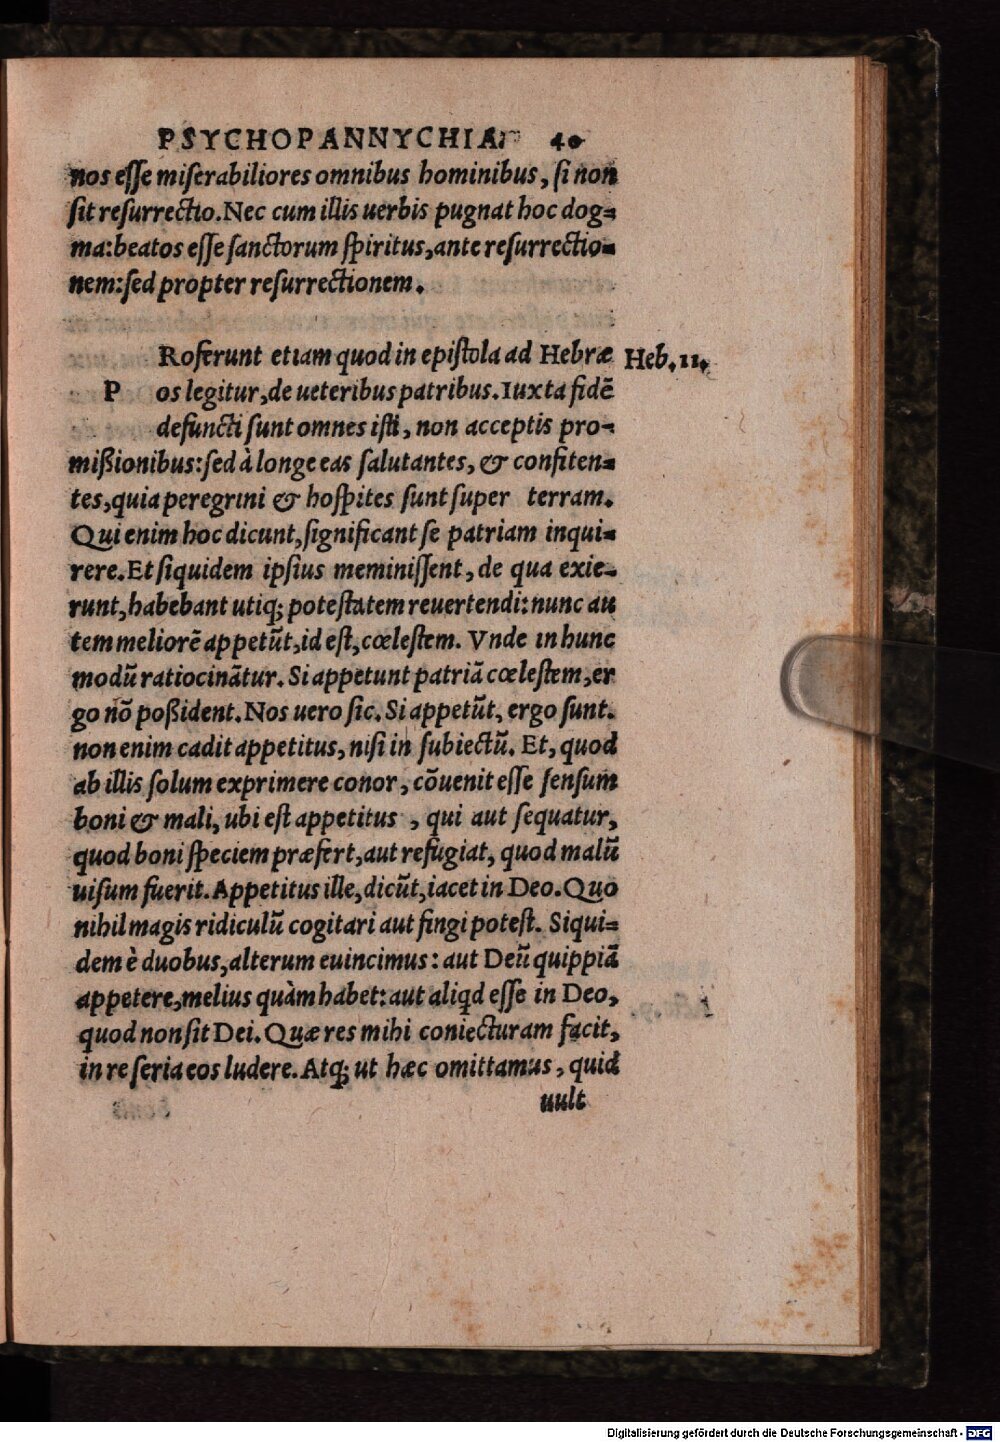 PSYCHOPANNYCHIA. 40
nos eſſe miſerabiliores omnibus hominibus, ſi non
ſit reſurrectio. Nec cum illis uerbis pugnat hoc dog-
ma: beatos eſſe ſanctorum ſpiritus, ante reſurrectio-
nem: ſed propter reſurrectionem.
Roferunt etiam quod in epiſtola ad Hebræ Heb. 11.
P os legitur, de ueteribus patribus. Iuxta fidẽ
defuncti ſunt omnes iſti, non acceptis pro-
mißionibus: ſed à longe eas ſalutantes, & confiten-
tes, quia peregrini & hoſpites ſunt ſuper terram.
Qui enim hoc dicunt, ſignificant ſe patriam inqui-
rere. Et ſiquidem ipſius meminiſſent, de qua exie-
runt, habebant utiq; poteſtatem reuertendi: nunc au
tem meliorẽ appetũt, id eſt, cœleſtem. Vnde in hunc
modũ ratiocinãtur. Si appetunt patriã cœleſtem, er
go nõ poßident. Nos uero ſic. Si appetũt, ergo ſunt.
non enim cadit appetitus, niſi in ſubiectũ. Et, quod
ab illis ſolum exprimere conor, cõuenit eſſe ſenſum
boni & mali, ubi eſt appetitus , qui aut ſequatur,
quod boni ſpeciem præfert, aut refugiat, quod malũ
uiſum fuerit. Appetitus ille, dicũt, iacet in Deo. Quo
nihil magis ridiculũ cogitari aut fingi poteſt. Siqui-
dem è duobus, alterum euincimus: aut Deũ quippiã
appetere, melius quàm habet: aut aliqd eſſe in Deo,
quod non ſit Dei. Quæ res mihi coniecturam facit,
in re ſeria eos ludere. Atq; ut hæc omittamus, quid
uult
Digitalisierung gefördert durch die Deutsche Forschungsgemeinschaft - DFG